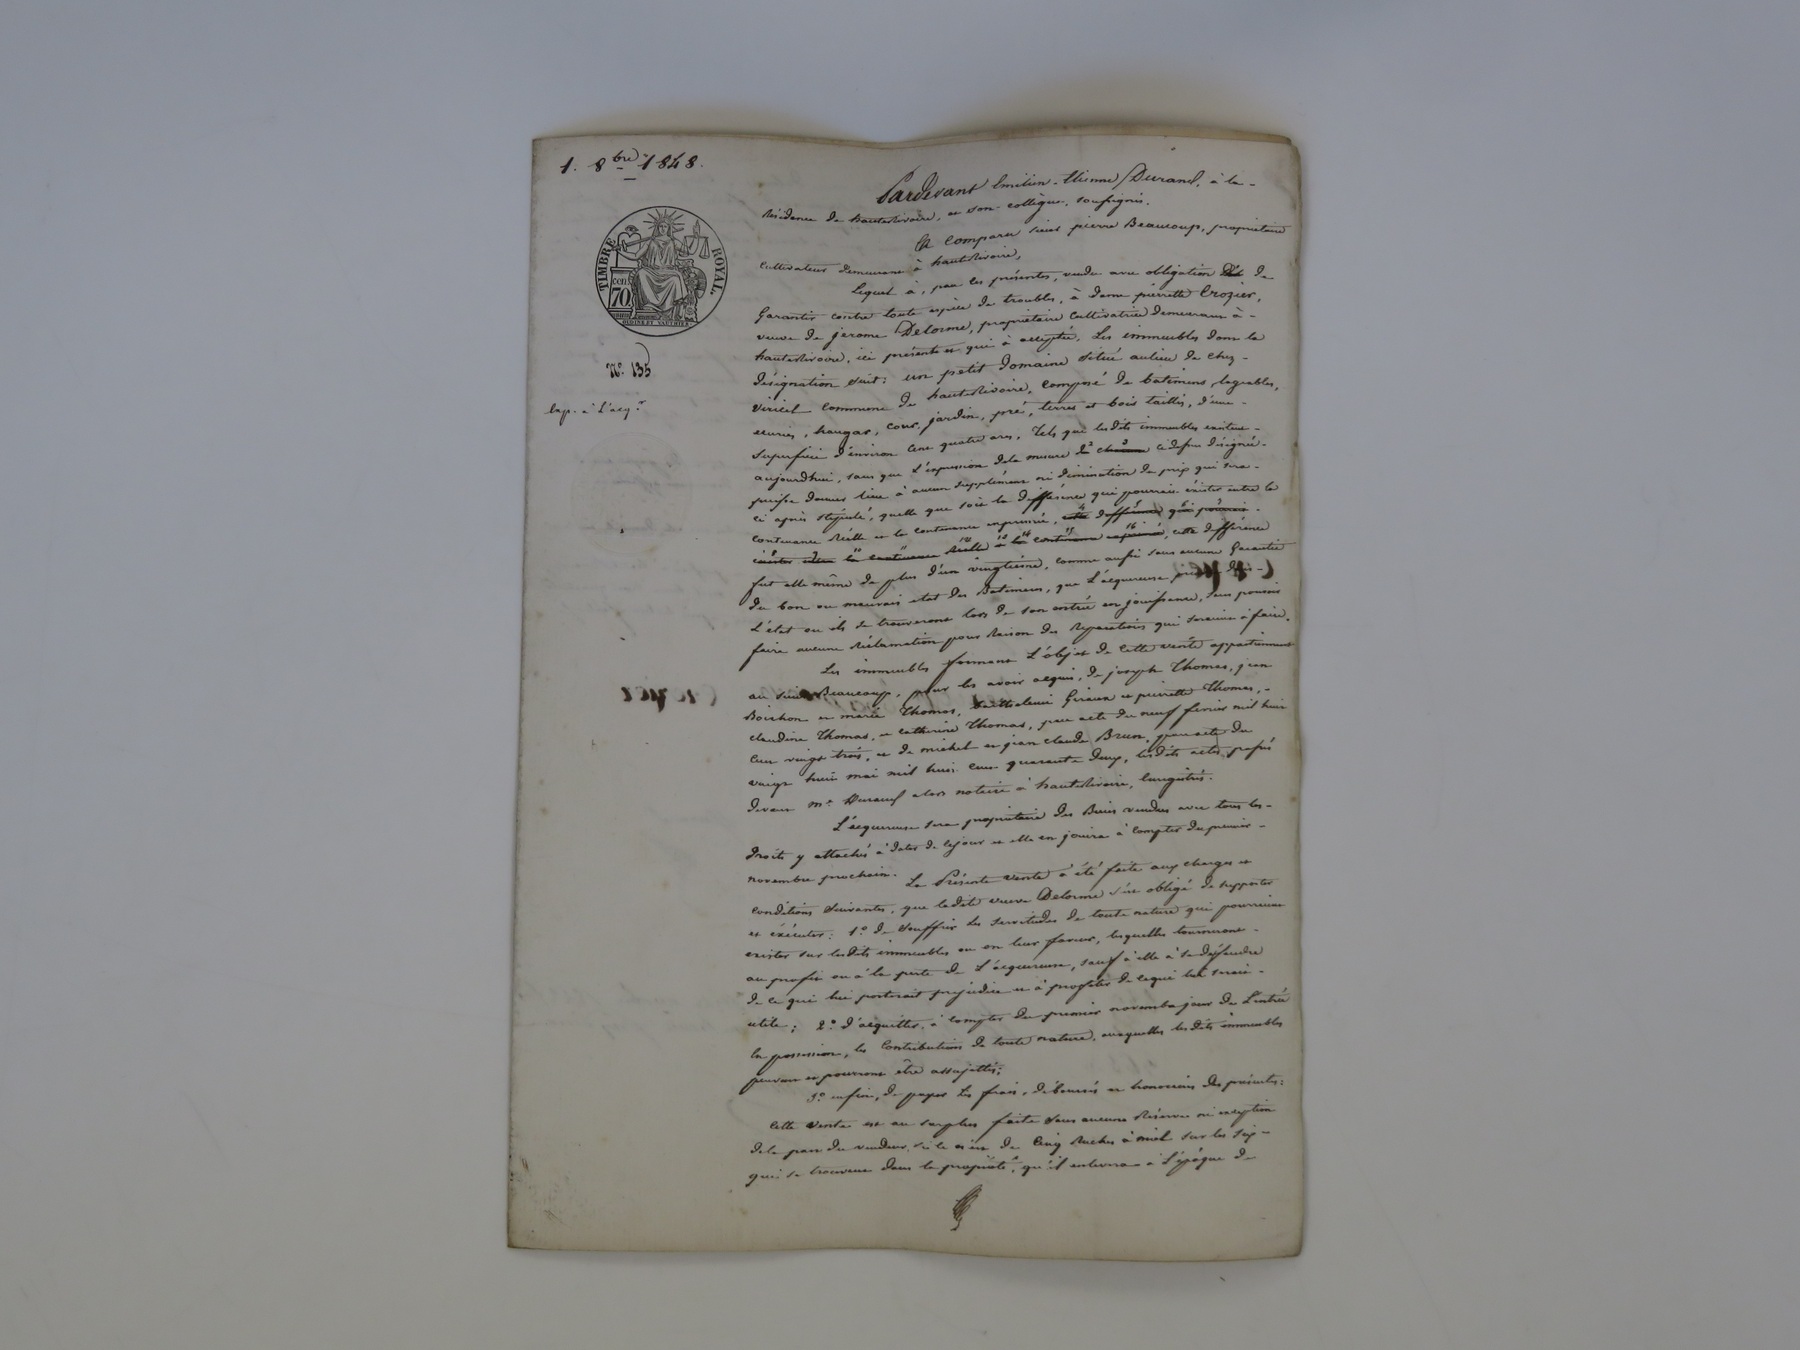 1. 8bre 1848.
TIMBRE ROYAL.
cen. 70
N° 135
Exp. à l'acq.r
Pardevant Emilien-Etienne Durand, à la
résidence de hauterivoire, et son collègue, soussignés.
A Comparu sieur pierre Beaucoup, propriétaire
Cultivateur demeurant à hauterivoire,
Lequel à, par les présentes, vendu avec obligation de
Garantir contre toute espèce de troubles, à dame pierrette Crozier,
veuve de jerome Delorme, propriétaire Cultivatrice demeurant à
hauterivoire, ici présente et qui à acceptée, Les immeubles dont la
désignation suit: un petit domaine situé au lieu de chez
viricel commune de hauterivoire, composé de batimens logeables,
écuries, hangar, cour, jardin, pré, terres et bois taillis, d'une
superficie d'environ Cent quatre ares, Tels que lesdits immeubles existent
aujourdhui, sans que l'expression de la mesure ci dessus désignée
puisse donner lieu à aucun supplément ni diminution de prix qui sera
ci après stipulé, quelle que soit la différence qui pourrait éxister entre la
contenance réelle et la contenance exprimée, cette différence qui pourrait
éxister entre la contenance réelle à la contenance exprimée, cette différence
fut elle même de plus d'un vingtième, comme aussi sans aucune Garantie
du bon ou mauvais etat des Batimens, que l'acquereuse prendra dans
L'état ou ils se trouveront lors de son entrée en jouissance, sans pouvoir
faire aucune réclamation pour raison des réparations qui seraient à faire.
Les immeubles formant L'objet de Cette vente appartiennent
au sieur Beaucoup, pour les avoir acquis, de joseph Thomas, jean
Boichon et marie Thomas, Barthelemi Giraud et pierrette Thomas,
claudine Thomas, et catherine Thomas, par acte du neuf février mil huit
Cent vingt trois, et de michel et jean claude Brun, par acte du
vingt huit mai mil huit Cent quarante deux, lesdits actes passés
devant me Durand alors notaire à hauterivoire, Enregistrés.
L'acquereuse sera propriétaire des Biens vendus avec tous les
droits y attachés à dater de ce jour et elle en jouira à compter du premier
novembre prochain. La Présente vente à été faite aux charges et
conditions suivantes, que ladite veuve Delorme s'est obligé de supporter
et éxécuter: 1° de souffrir les servitudes de toute nature qui pourraient
exister sur lesdits immeubles ou en leur faveur, lesquelles tourneront
au profit ou à la perte de L'acquereuse, sauf à elle à se défendre
de ce qui lui porterait préjudice et à profiter de ce qui lui serait
utile; 2° d'acquitter, à compter du premier novembre jour de L'entrée
en possession, les Contributions de toute nature, auxquelles lesdits immeubles
peuvent et pourront être assujettis;
3° enfin, de payer les frais, déboursés et honoraires des présentes;
Cette vente est au surplus faite sans aucune réserve ni exception
de la part du vendeur, si ce n'est de Cinq Ruches à miel sur les six
qui se trouvent dans la propriété, qu'il enlevera à l'époque de